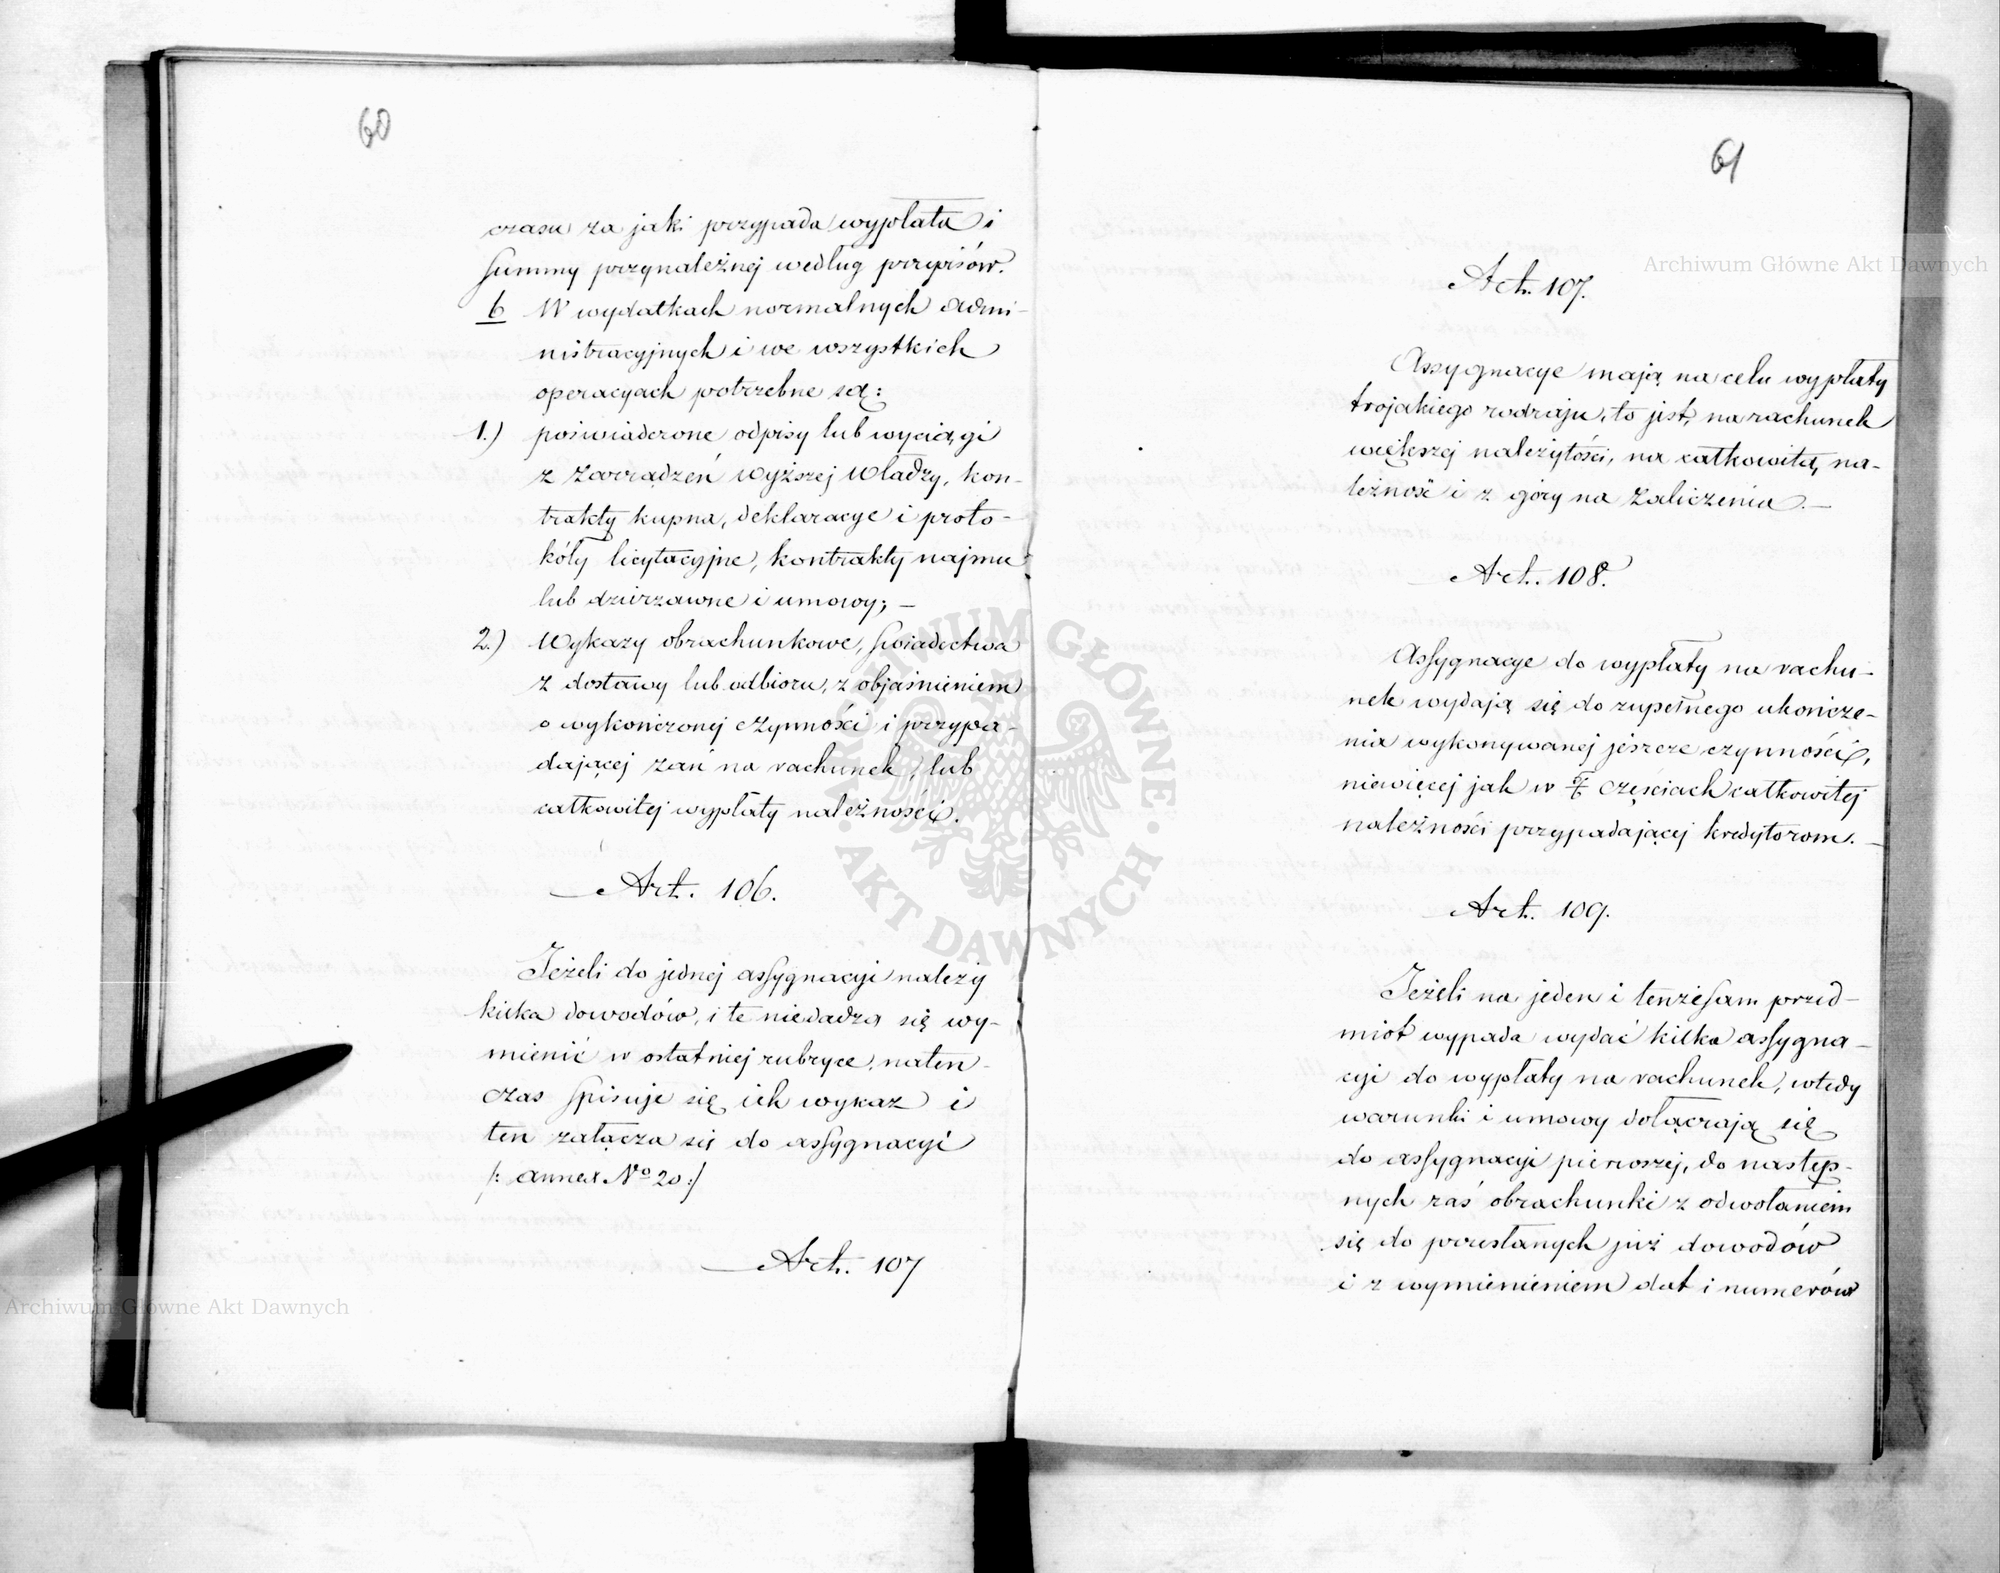 60
czasu za jaki przypada wypłata i
summy przynależnej według przepisów.
b W wydatkach normalnych admi-
nistracyjnych i we wszystkich
operacyach potrzebne są:
1.) poświadczone odpisy lub wyciągi
z zarządzeń wyższej Władzy, kon-
trakty kupna, deklaracye i proto-
kóły licytacyjne, kontrakty najmu
lub dzierzawne i umowy; —
2.) Wykazy obrachunkowe, świadectwa
z dostawy lub odbioru, z objaśnieniem
o wykończonej czynności i przypa-
dającej zań na rachunek, lub
całkowitej wypłaty należności.
Art. 106.
Jeżeli do jednej assygnacyi należy
kilka dowodów, i te niedadzą się wy-
mienić w ostatniej rubryce, naten-
czas spisuje się ich wykaz i
ten załącza się do assygnacyi
/: annex № 20 :/
Art. 107
61
Art. 107.
Assygnacye mają na celu wypłaty
trojakiego rodzaju, to jest, na rachunek
większej należytości, na całkowitą na-
leżność i z góry na zaliczenia. —
Art. 108.
Assygnacye do wypłaty na rachu-
nek wydają się do zupełnego ukończe-
nia wykonywanej jeszcze czynności,
niewięcej jak w częściach całkowitej
należności przypadającej kredytorom. —
Art. 109.
Jeżeli na jeden i tenżesam przed-
miot wypada wydać kilka assygna-
cyi do wypłaty na rachunek, wtedy
warunki i umowy dołączają się
do assygnacyi pierwszej, do następ-
nych zaś obrachunki z odwołaniem
się do przesłanych już dowodów
i z wymienieniem dat i numerów
Archiwum Główne Akt Dawnych
Archiwum Główne Akt Dawnych
ARCHIWUM GŁÓWNE AKT DAWNYCH